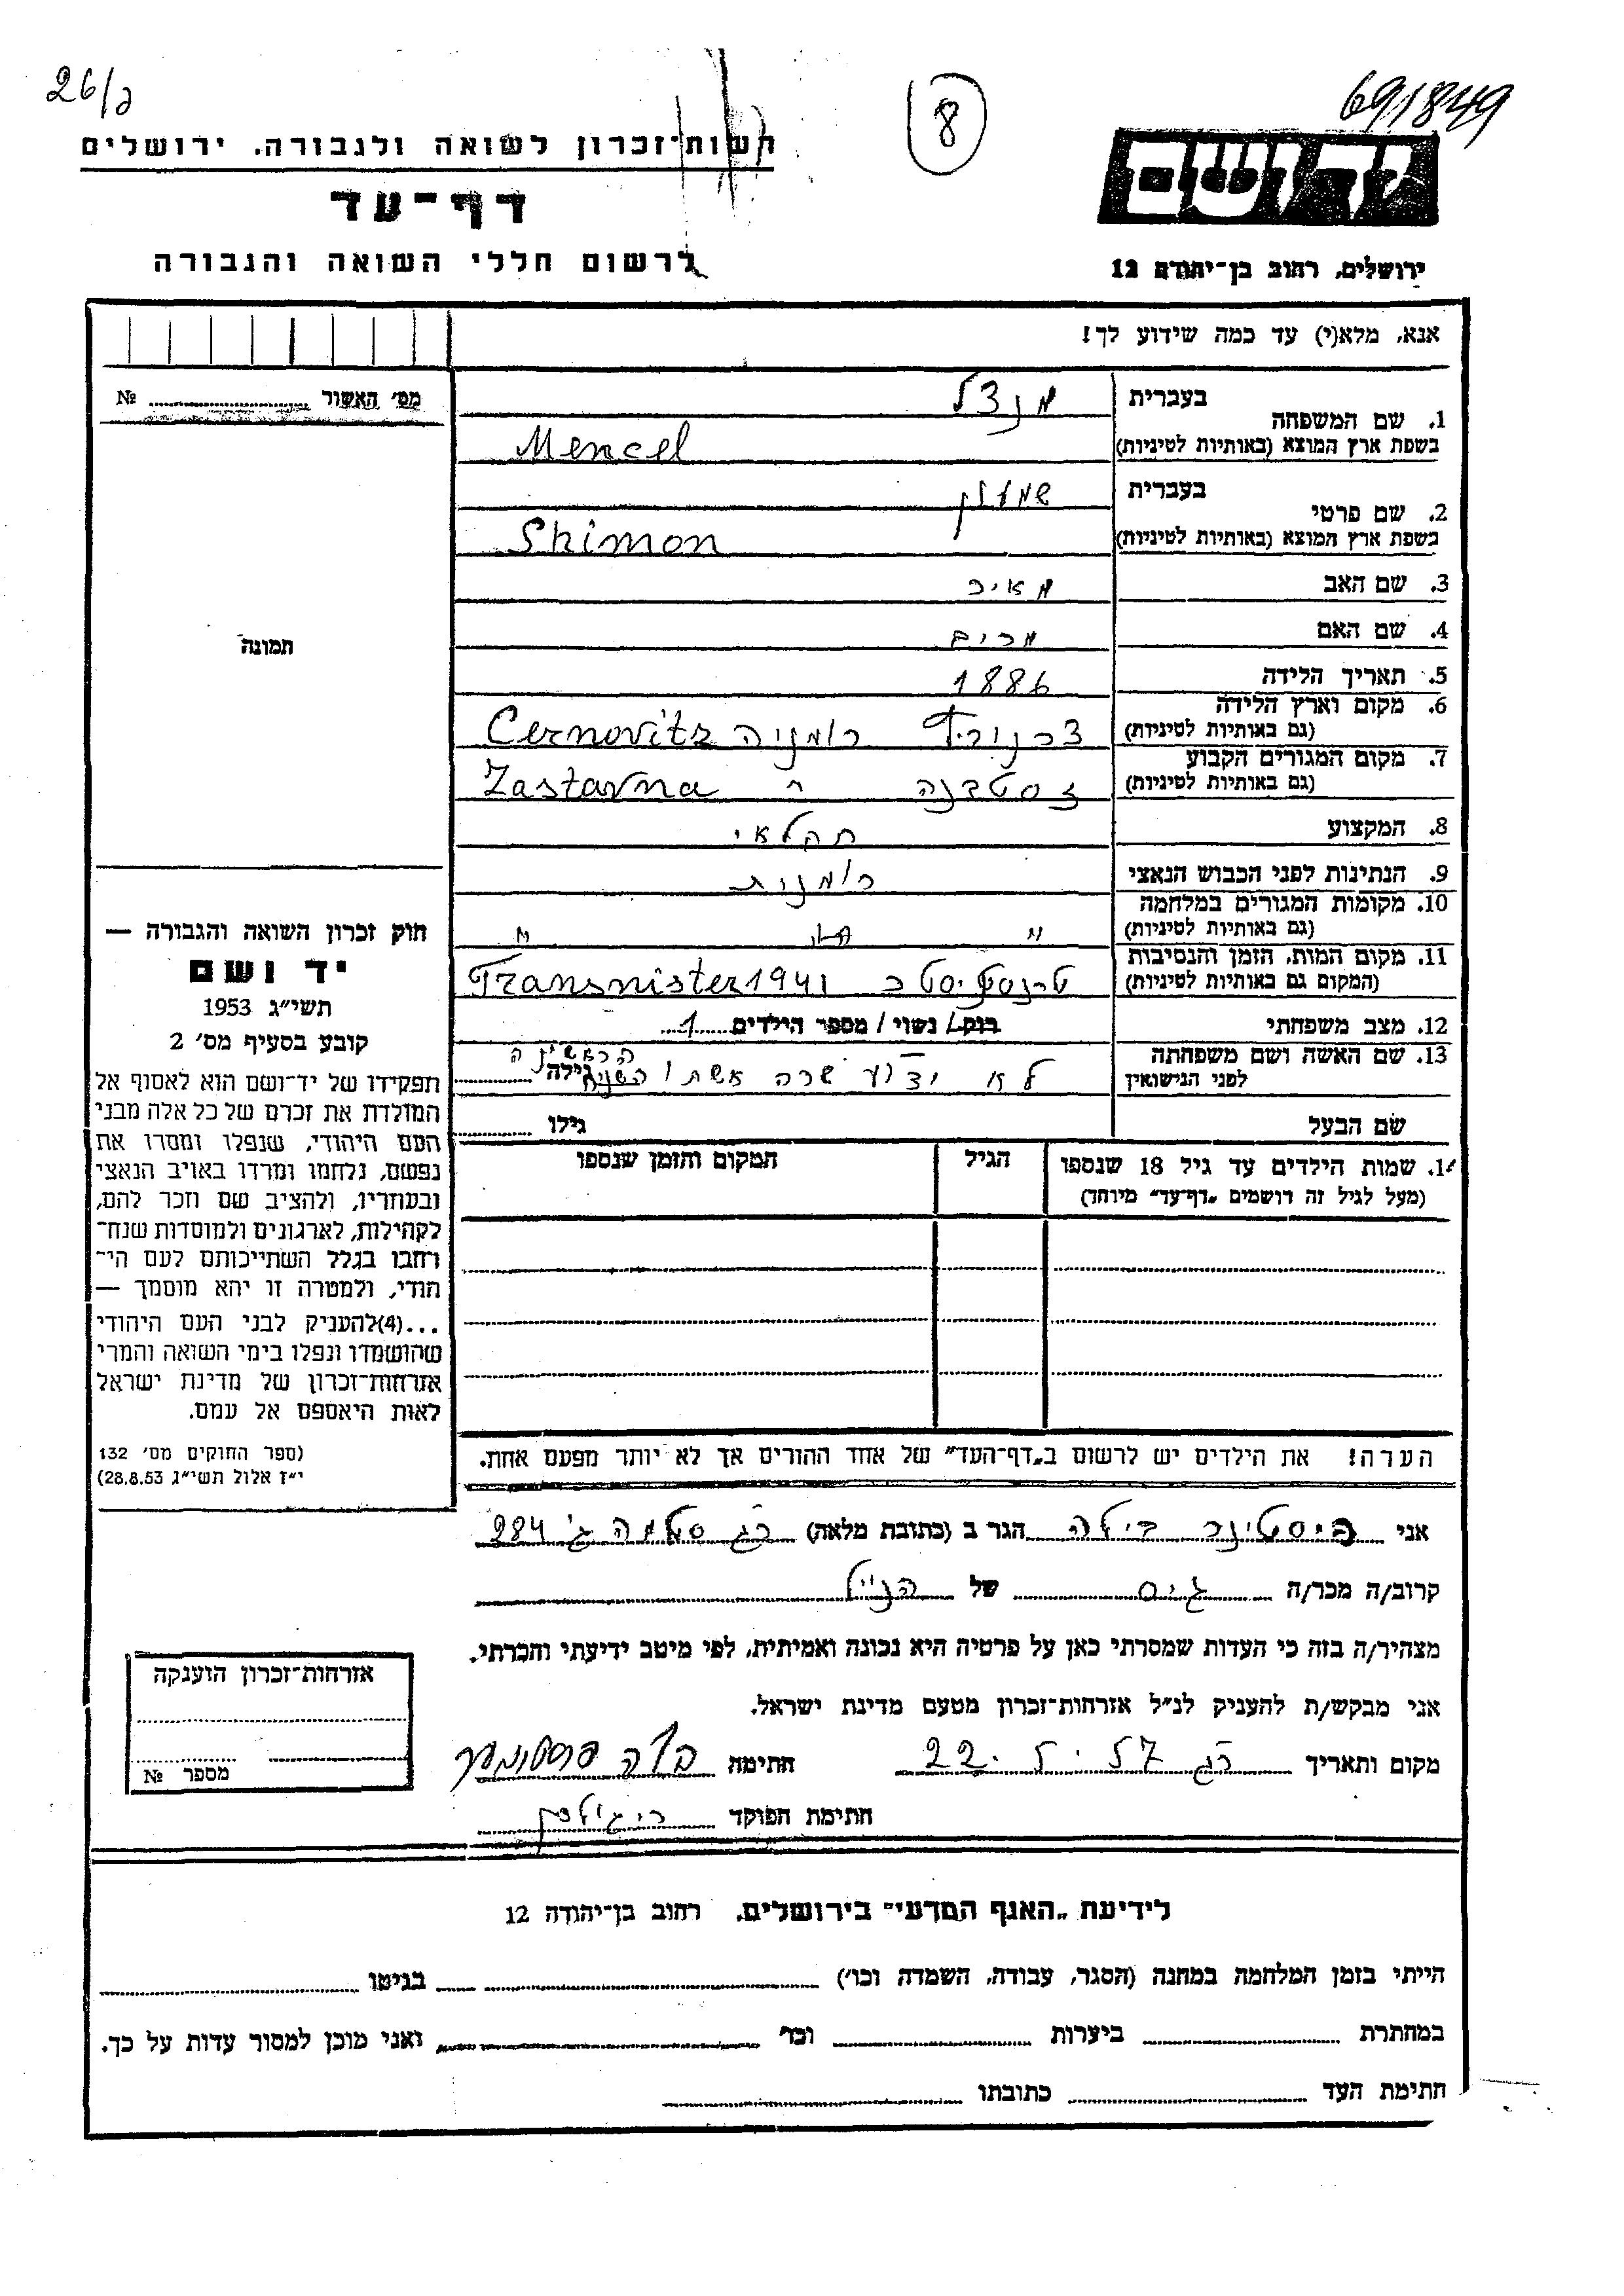 26/ג
8
691849
רשות־זכרון לשואה ולגבורה. ירושלים
דף־עד
לרשום חללי השואה והגבורה
יד ושם
ירושלים, רחוב בן־יהודה 12
אנא, מלא(י) עד כמה שידוע לך!
מס׳ האשור № 
1. שם המשפחה
בעברית
מנצל
בשפת ארץ המוצא (באותיות לטיניות)
Mencel
2. שם פרטי
בעברית
שמעון
בשפת ארץ המוצא (באותיות לטיניות)
Shimon
3. שם האב מאיר
4. שם האם מרים
תמונה
5. תאריך הלידה 1886
6. מקום וארץ הלידה
(גם באותיות לטיניות)
צרנוביץ רומניה Cernovitz
7. מקום המגורים הקבוע
(גם באותיות לטיניות)
זסטבנה " Zastavna
8. המקצוע חקלאי
9. הנתינות לפני הכבוש הנאצי רומנית
10. מקומות המגורים במלחמה
(גם באותיות לטיניות)
11. מקום המות, הזמן והנסיבות
(המקום גם באותיות לטיניות)
Transnister 1941
12. מצב משפחתי נשוי / מספר הילדים 1
13. שם האשה ושם משפחתה
לפני הנישואין
לא ידוע שרה אשתו הראשונה גילה
שם הבעל גילו
14. שמות הילדים עד גיל 18 שנספו
(מעל לגיל זה רושמים „דף־עד״ מיוחד)
הגיל
המקום והזמן שנספו
חוק זכרון השואה והגבורה —
יד ושם
תשי״ג 1953
קובע בסעיף מס׳ 2
תפקידו של יד־ושם הוא לאסוף אל
המולדת את זכרם של כל אלה מבני
העם היהודי, שנפלו ומסרו את
נפשם, נלחמו ומרדו באויב הנאצי
ובעוזריו, ולהציב שם וזכר להם,
לקהילות, לארגונים ולמוסדות שנח־
רבו בגלל השתייכותם לעם הי־
הודי, ולמטרה זו יהא מוסמך —
...(4)להעניק לבני העם היהודי
שהושמדו ונפלו בימי השואה והמרי
אזרחות־זכרון של מדינת ישראל
לאות היאספם אל עמם.
(ספר החוקים מס׳ 132
י״ז אלול תשי״ג 28.8.53)
הערה! את הילדים יש לרשום ב„דף־העד״ של אחד ההורים אך לא יותר מפעם אחת.
אני הגר ב (כתובת מלאה) רג סלמה ג׳ 284
קרוב/ה מכר/ה גיס של הנ״ל
מצהיר/ה בזה כי העדות שמסרתי כאן על פרטיה היא נכונה ואמיתית, לפי מיטב ידיעתי והכרתי.
אני מבקש/ת להעניק לנ״ל אזרחות־זכרון מטעם מדינת ישראל.
מקום ותאריך רג 22. 57 חתימה
חתימת הפוקד
אזרחות־זכרון הוענקה
מספר №
לידיעת „האגף המדעי״ בירושלים, רחוב בן־יהודה 12
הייתי בזמן המלחמה במחנה (הסגר, עבודה, השמדה וכו׳) בגיטו
במחתרת ביערות וכו׳ ואני מוכן למסור עדות על כך.
חתימת העד כתובתו